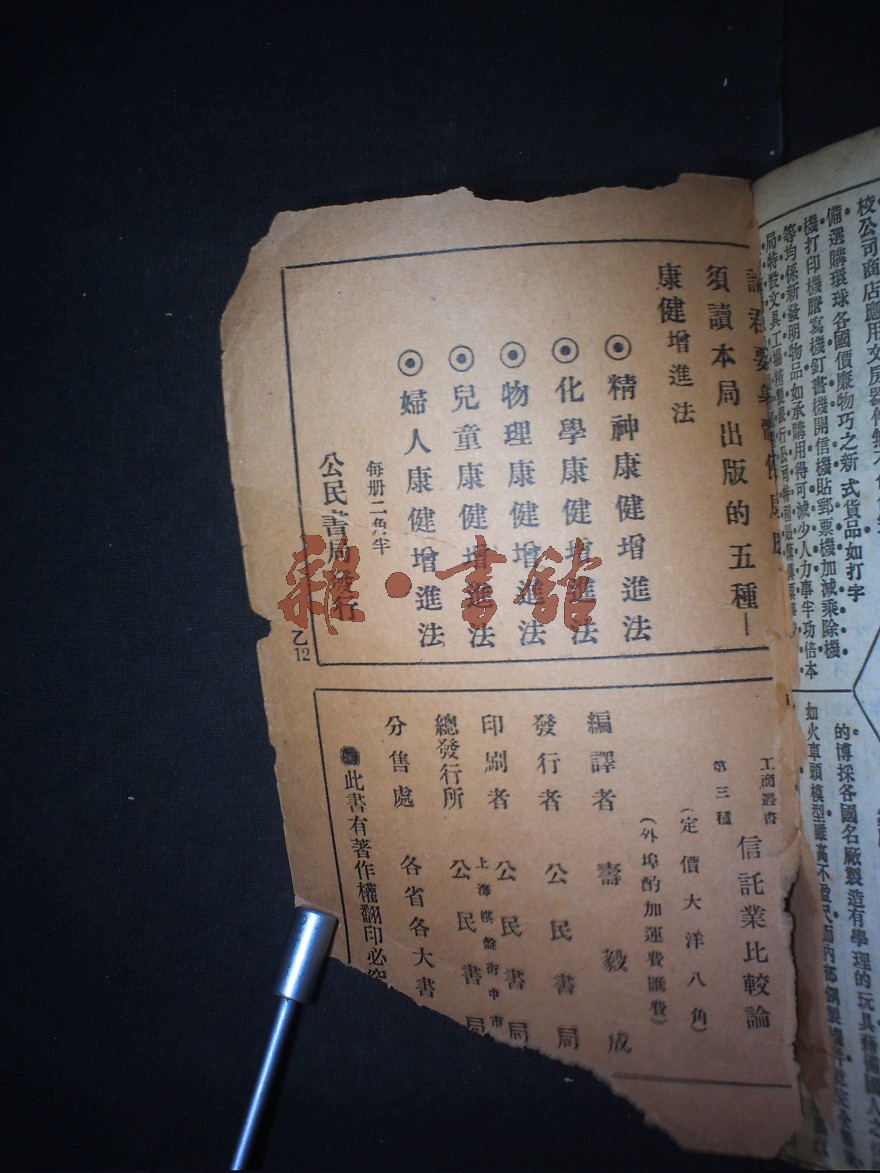 校公司商店應用文房器件無不
備選購環球各國價廉物巧之新式貨品如打字
機打印機謄寫機釘書機開信機貼郵票機加減乘除機
等均係新發明物品如承購用得可減少人力事半功倍本
局特設文具工場精製銀行公司
的博採各國名廠製造有學理的玩具
如火車頭模型雖高不盈尺而內部
諸君要身體
須讀本局出版的五種—
康健增進法
精神康健增進法
化學康健增進法
物理康健增進法
兒童康健增進法
婦人康健增進法
每册二角半
公民書局發行
乙12
工商叢書
第三種
信託業比較論
(定價大洋八角)
(外埠酌加運費匯費)
編譯者 壽毅成
發行者 公民書局
印刷者 公民書局
上海棋盤街中市
總發行所 公民書局
分售處 各省各大書
此書有著作權翻印必究
雜·書館